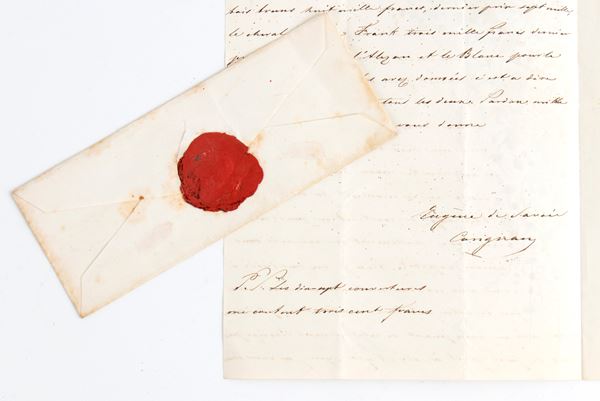 bais bruns huit mille francs, dernier prix sept mille,
le cheval Frank trois mille francs dernier
d'Alezan et le Blanc pour le
les avez données c'est a dire
tous les deux mille
vous donne
Eugène de Savoie
Carignan
P.S. Les dixsept couvertures
me coutent trois cent francs